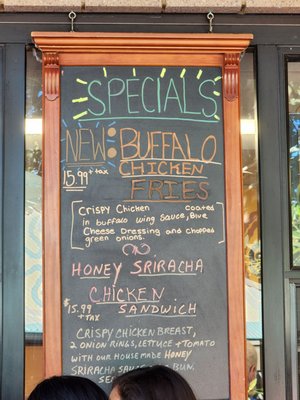 SPECIALS
NEW: BUFFALO
15.99 + tax CHICKEN
FRIES
CRISPY Chicken coated
in buffalo wing sauce, Blue
Cheese Dressing and chopped
green onions.
HONEY SRIRACHA
CHICKEN
$15.99 SANDWICH
+ TAX
CRISPY CHICKEN BREAST,
2 ONION RINGS, LETTUCE + TOMATO
WITH OUR HOUSE MADE HONEY
SRIRACHA SAUCE BUN.